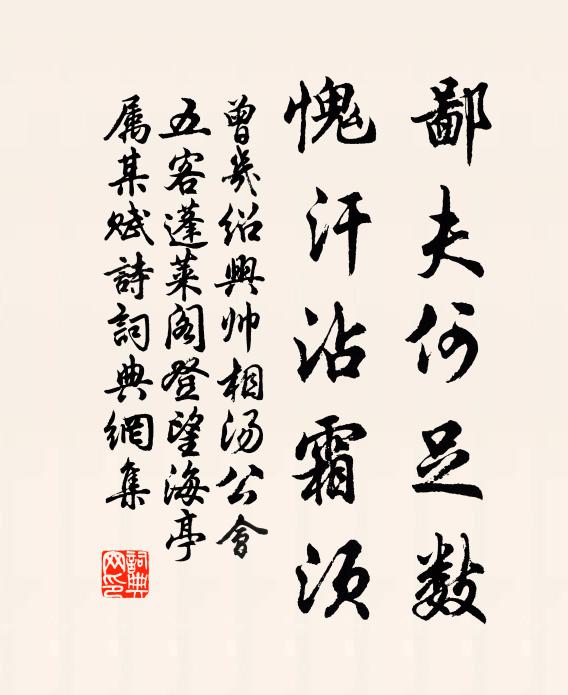 鄙夫何足数
愧汗沾霜须
曾幾绍興帅相汤公會
五客蓬莱阁登望海亭
属某赋詩詞典網集
詞典
网印